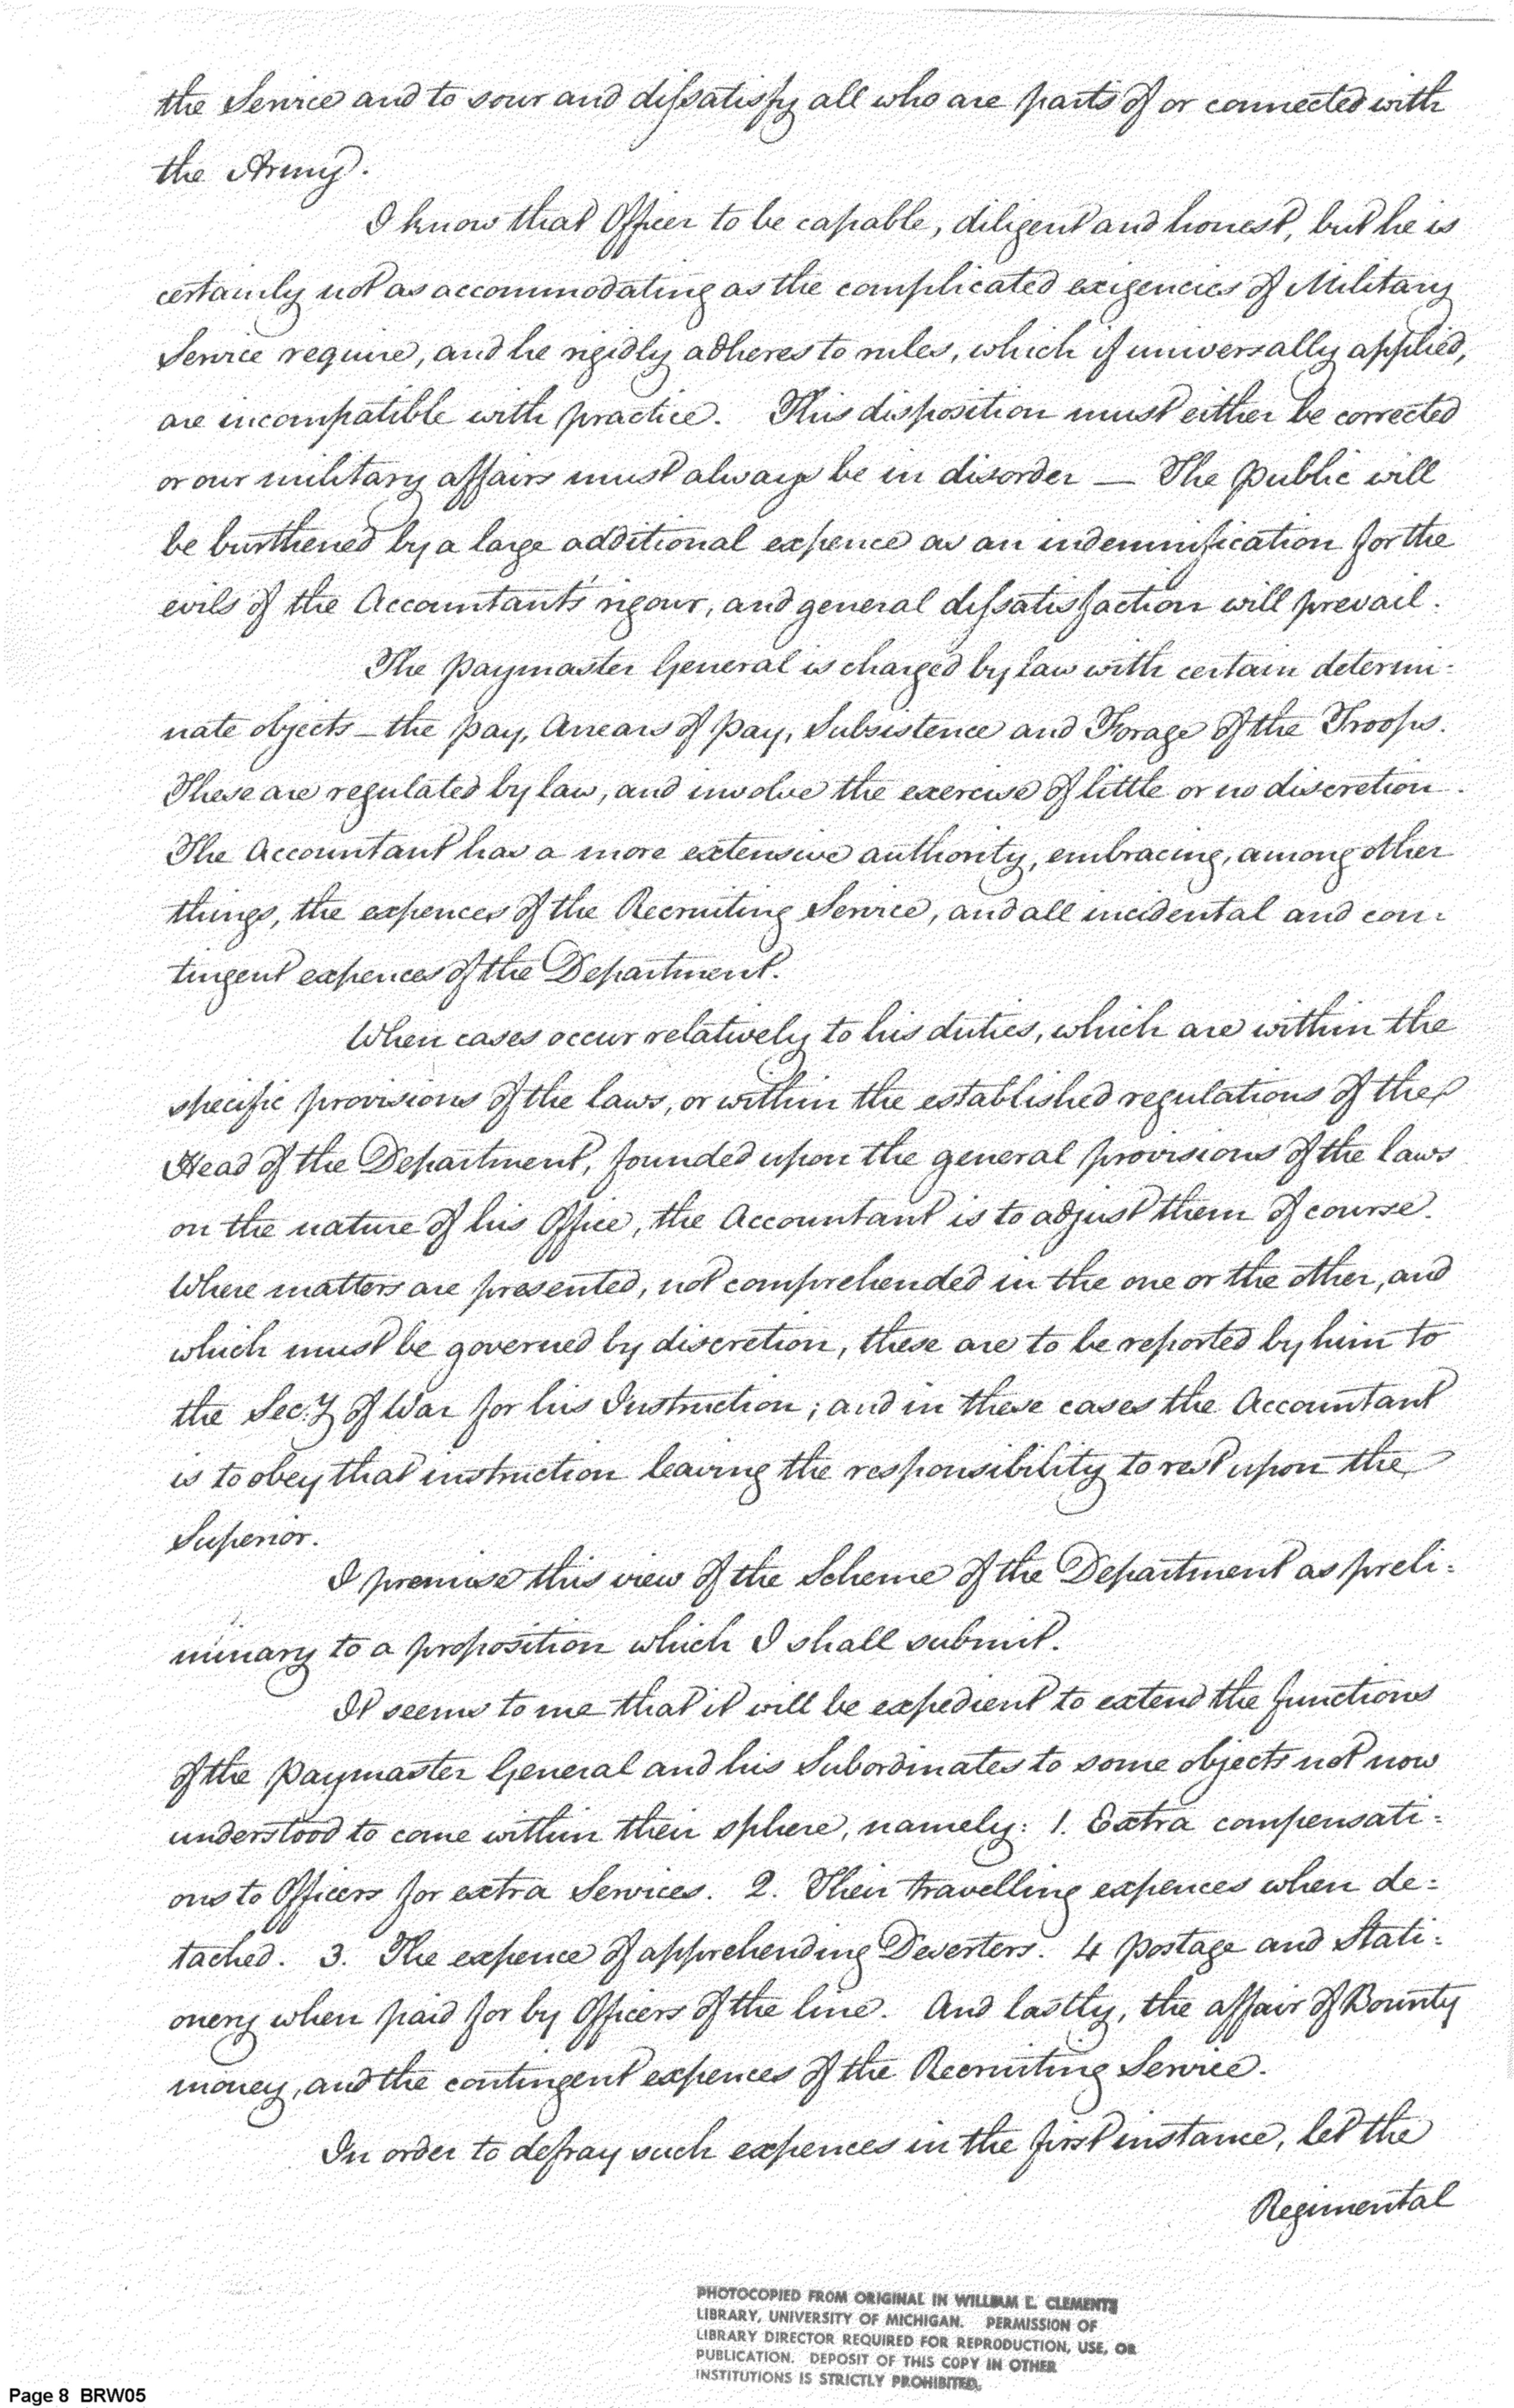 the Service and to sour and dissatisfy all who are parts of or connected with
the Army.
I know that Officer to be capable, diligent and honest, but he is
certainly not as accommodating as the complicated exigencies of Military
Service require, and he rigidly adheres to rules, which if universally applied,
are incompatible with practice. This disposition must either be corrected
or our military affairs must always be in disorder — The public will
be burthened by a large additional expence as an indemnification for the
evils of the Accountant's rigour, and general dissatisfaction will prevail.
The Paymaster General is charged by law with certain determi-
nate objects — the pay, Arrears of pay, Subsistence and Forage of the Troops.
These are regulated by law, and involve the exercise of little or no discretion.
The Accountant has a more extensive authority, embracing, among other
things, the expences of the Recruiting Service, and all incidental and con-
tingent expences of the Department.
When cases occur relatively to his duties, which are within the
specific provisions of the laws, or within the established regulations of the
Head of the Department, founded upon the general provisions of the laws
on the nature of his Office, the Accountant is to adjust them of course.
Where matters are presented, not comprehended in the one or the other, and
which must be governed by discretion, these are to be reported by him to
the Sec:y of War for his Instruction; and in these cases the Accountant
is to obey that instruction leaving the responsibility to rest upon the
Superior.
I premise this view of the Scheme of the Department as preli-
minary to a proposition which I shall submit.
It seems to me that it will be expedient to extend the functions
of the Paymaster General and his Subordinates to some objects not now
understood to come within their sphere, namely: 1. Extra compensati-
ons to Officers for extra Services. 2. Their travelling expences when de-
tached. 3. The expence of apprehending Deserters. 4 Postage and Stati-
onery when paid for by Officers of the line. And lastly, the affair of Bounty
money, and the contingent expences of the Recruiting Service.
In order to defray such expences in the first instance, let the
Regimental
PHOTOCOPIED FROM ORIGINAL IN WILLIAM L. CLEMENTS
LIBRARY, UNIVERSITY OF MICHIGAN. PERMISSION OF
LIBRARY DIRECTOR REQUIRED FOR REPRODUCTION, USE, OR
PUBLICATION. DEPOSIT OF THIS COPY IN OTHER
INSTITUTIONS IS STRICTLY PROHIBITED.
Page 8 BRW05